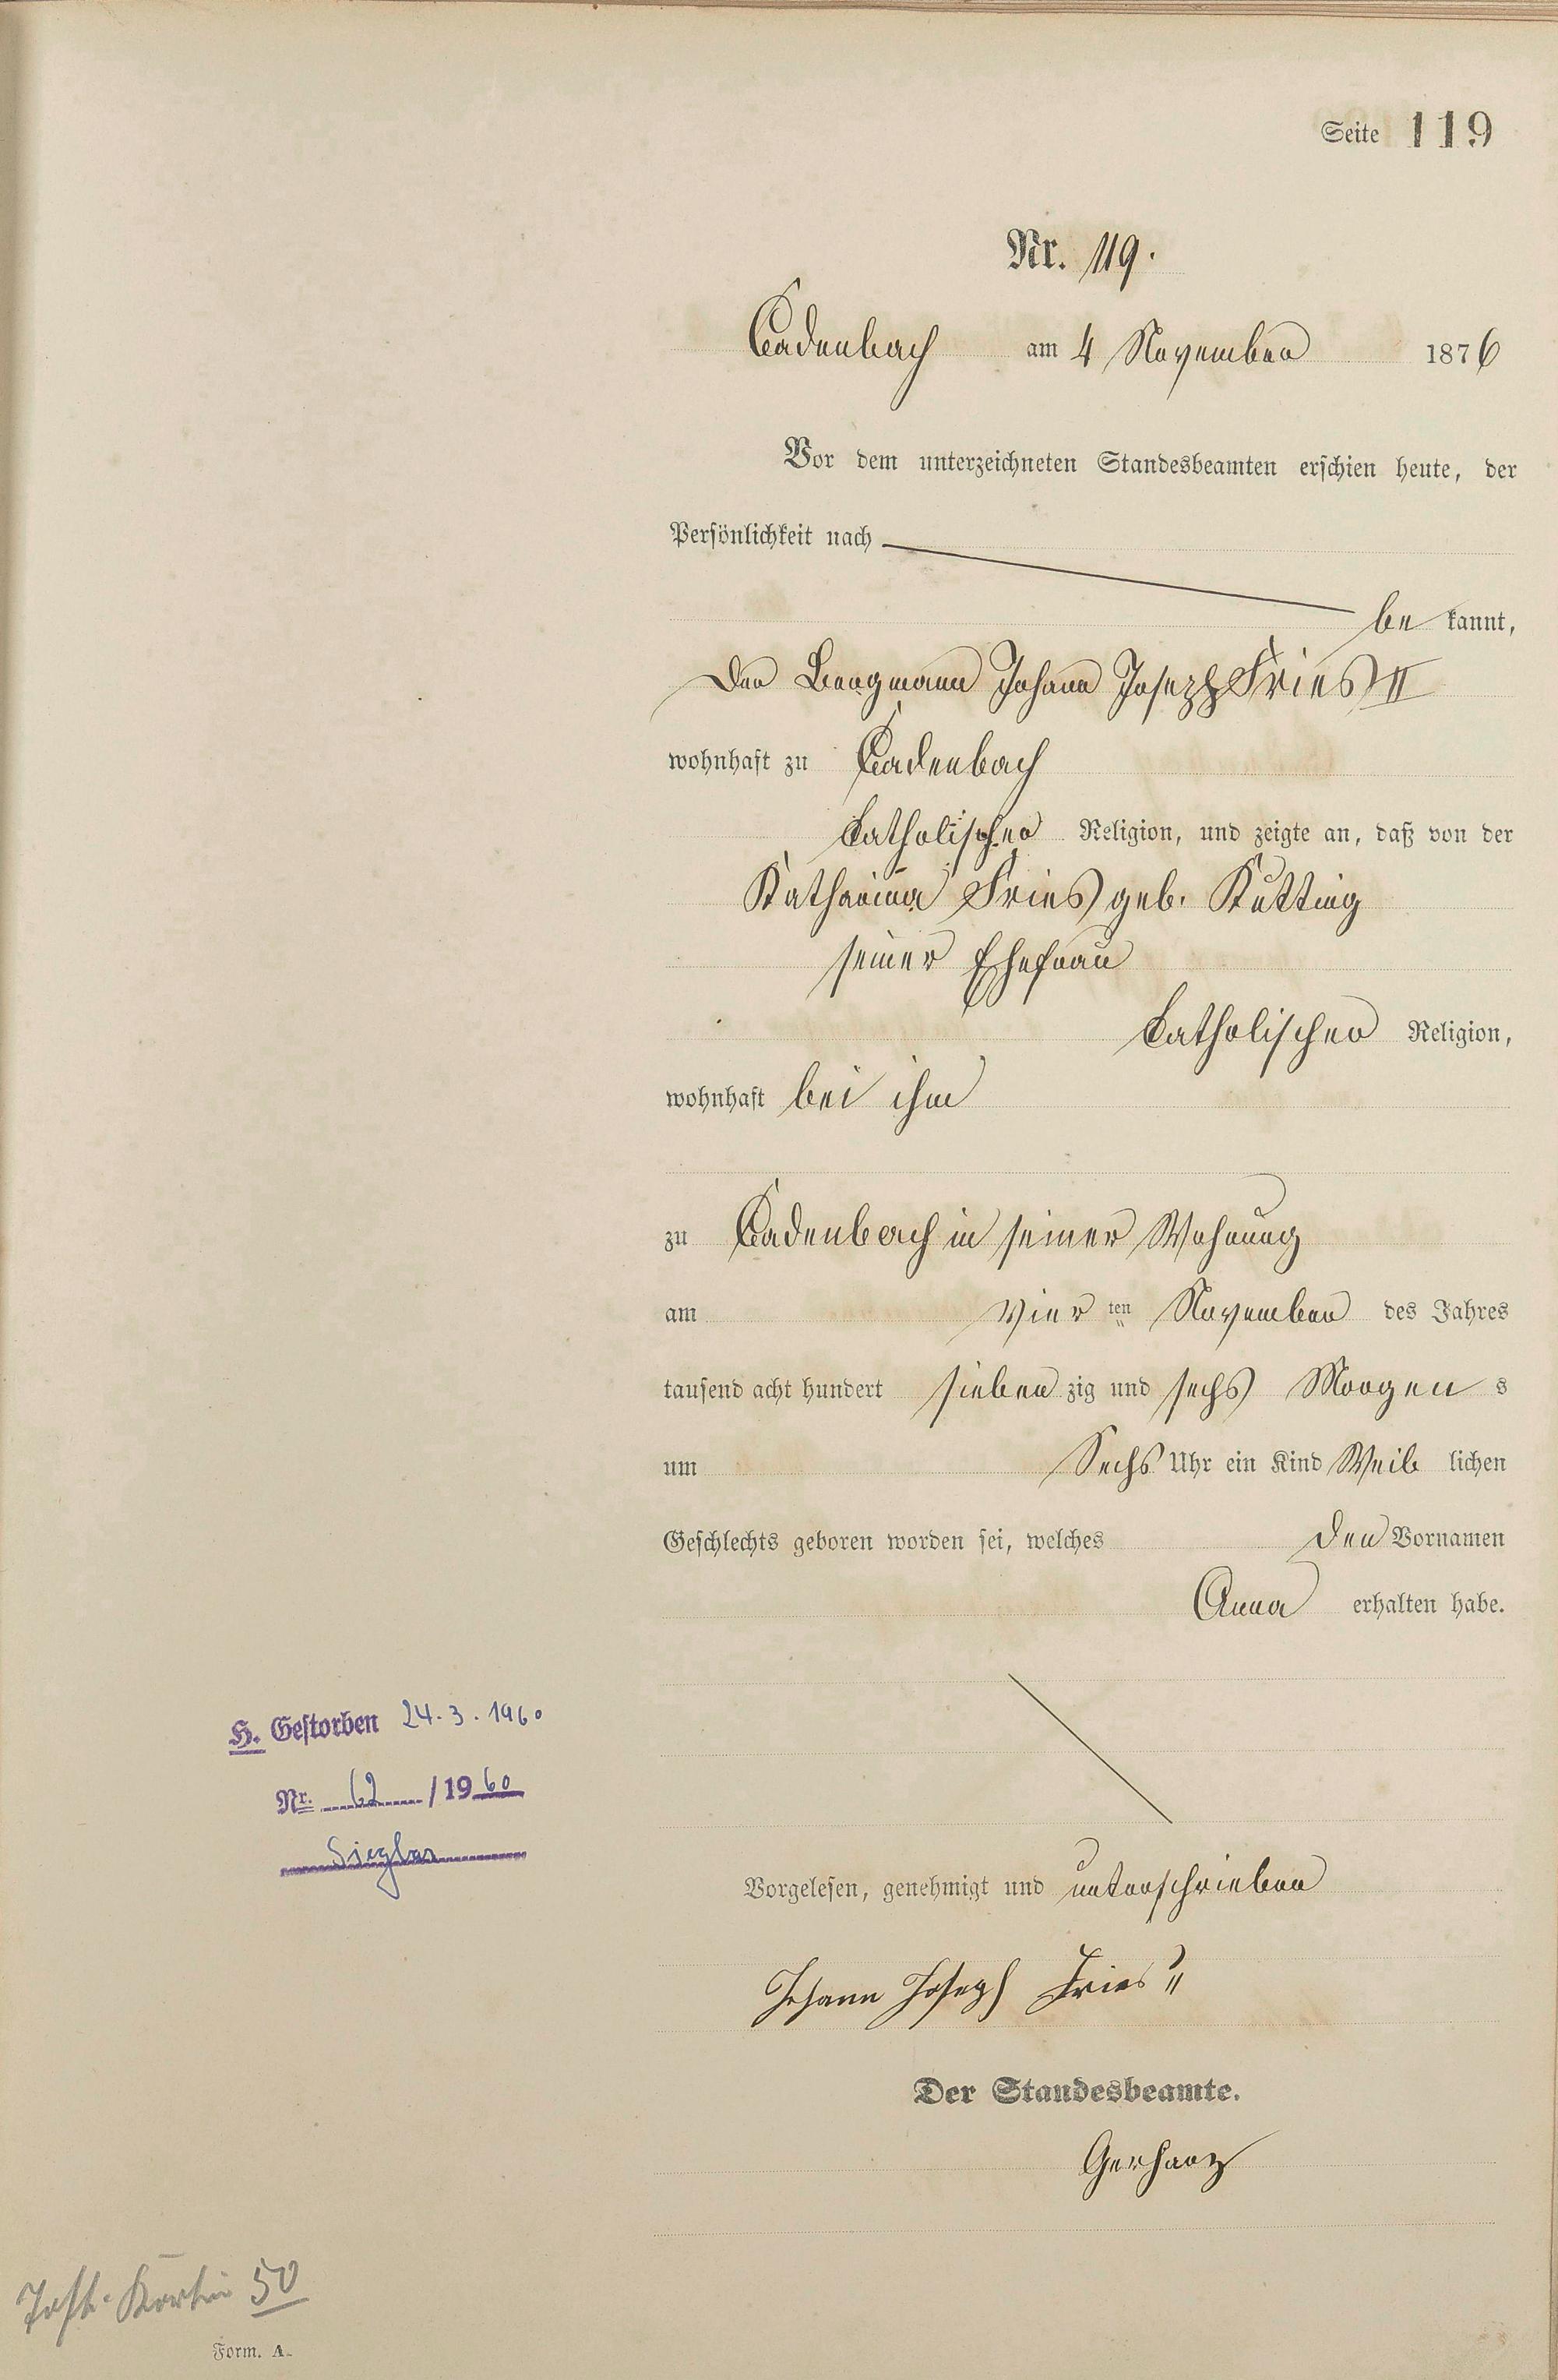 Seite 119
Nr. 119.
Cadenbach am 4 November 1876
Vor dem unterzeichneten Standesbeamten erschien heute, der
Persönlichkeit nach
be kannt,
der Bergmann Johann Joseph Fries II
wohnhaft zu Cadenbach
katholischer Religion, und zeigte an, daß von der
Katharina Fries geb. Kutting
seiner Ehefrau
katholischer Religion,
wohnhaft bei ihm
zu Cadenbach in seiner Wohnung
am vier ten November des Jahres
tausend acht hundert sieben zig und sechs Morgen s
um Sechs Uhr ein Kind Weib lichen
Geschlechts geboren worden sei, welches den Vornamen
Anna erhalten habe.
H. Gestorben 24.3.1960
Nr. 62 / 1960
Sieglar
Vorgelesen, genehmigt und unterschrieben
Johann Joseph Fries II
Der Standesbeamte.
Gerharz
50
Form. A.